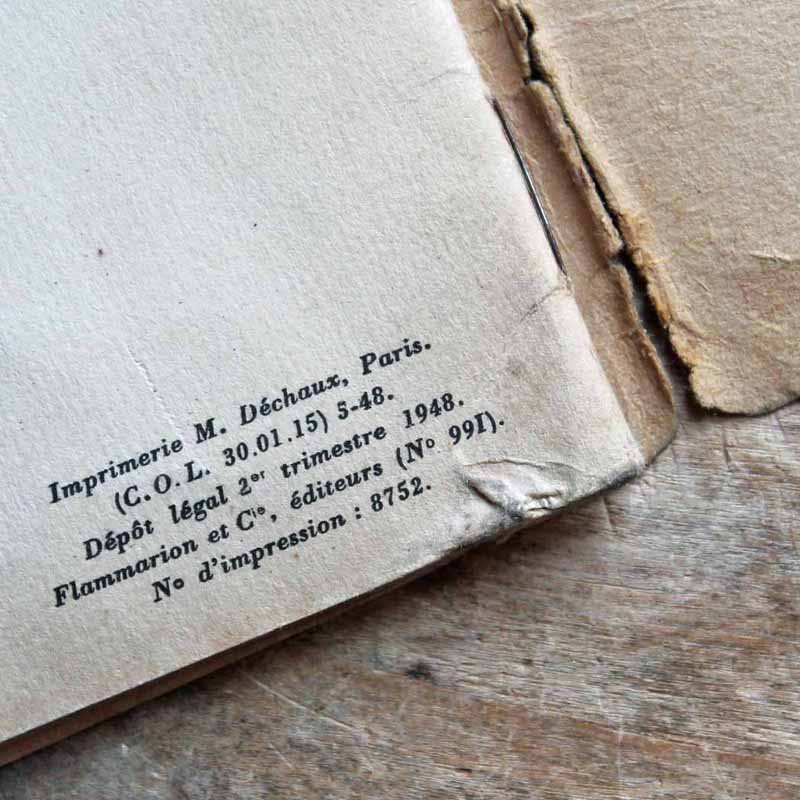 Imprimerie M. Déchaux, Paris.
(C.O.L. 30.01.15) 5-48.
Dépôt légal 2er trimestre 1948.
Flammarion et Cie, éditeurs (No 99I).
No d'impression : 8752.